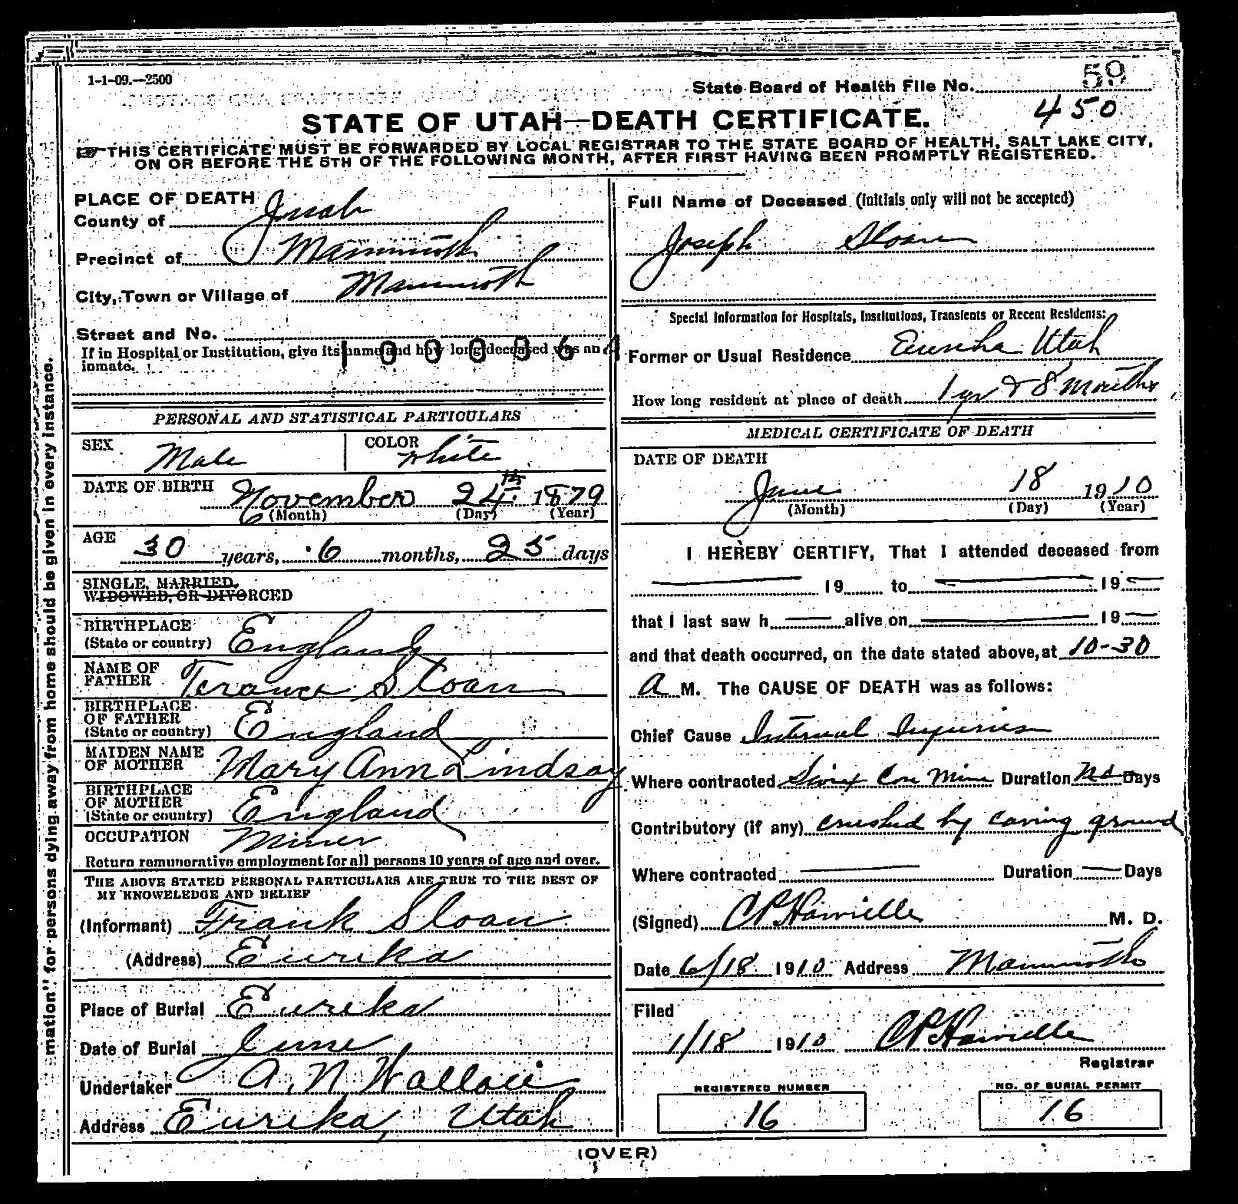 1-1-09.—2500
State Board of Health File No. 59
450
STATE OF UTAH—DEATH CERTIFICATE.
THIS CERTIFICATE MUST BE FORWARDED BY LOCAL REGISTRAR TO THE STATE BOARD OF HEALTH, SALT LAKE CITY,
ON OR BEFORE THE 5TH OF THE FOLLOWING MONTH, AFTER FIRST HAVING BEEN PROMPTLY REGISTERED.
PLACE OF DEATH
County of Juab
Precinct of Mammoth
City, Town or Village of Mammoth
Street and No.
If in Hospital or Institution, give its name and how long deceased was an
inmate.
PERSONAL AND STATISTICAL PARTICULARS
SEX Male COLOR White
DATE OF BIRTH November 24th 1879
(Month) (Day) (Year)
AGE 30 years, 6 months, 25 days
SINGLE, MARRIED,
WIDOWED, OR DIVORCED
BIRTHPLACE
(State or country) England
NAME OF
FATHER Terance Sloan
BIRTHPLACE
OF FATHER
(State or country) England
MAIDEN NAME
OF MOTHER Mary Ann Lindsay
BIRTHPLACE
OF MOTHER
(State or country) England
OCCUPATION Miner
Return remunerative employment for all persons 10 years of age and over.
THE ABOVE STATED PERSONAL PARTICULARS ARE TRUE TO THE BEST OF
MY KNOWLEDGE AND BELIEF
(Informant) Frank Sloan
(Address) Eureka
Place of Burial Eureka
Date of Burial June
Undertaker A. N. Wallace
Address Eureka, Utah
Full Name of Deceased (Initials only will not be accepted)
Joseph Sloan
Special Information for Hospitals, Institutions, Transients or Recent Residents:
Former or Usual Residence Eureka Utah
How long resident at place of death 1 yr & 8 months
MEDICAL CERTIFICATE OF DEATH
DATE OF DEATH
June 18 1910
(Month) (Day) (Year)
I HEREBY CERTIFY, That I attended deceased from
19 to 19
that I last saw h alive on 19
and that death occurred, on the date stated above, at 10-30
A M. The CAUSE OF DEATH was as follows:
Chief Cause Internal Injuries
Where contracted Mine Duration No Days
Contributory (if any) crushed by caving ground
Where contracted Duration Days
(Signed) M. D.
Date 6/18 1910 Address Mammoth
Filed
1/18 1910
Registrar
REGISTERED NUMBER
16
NO. OF BURIAL PERMIT
16
(OVER)
mation" for persons dying away from home should be given in every instance.